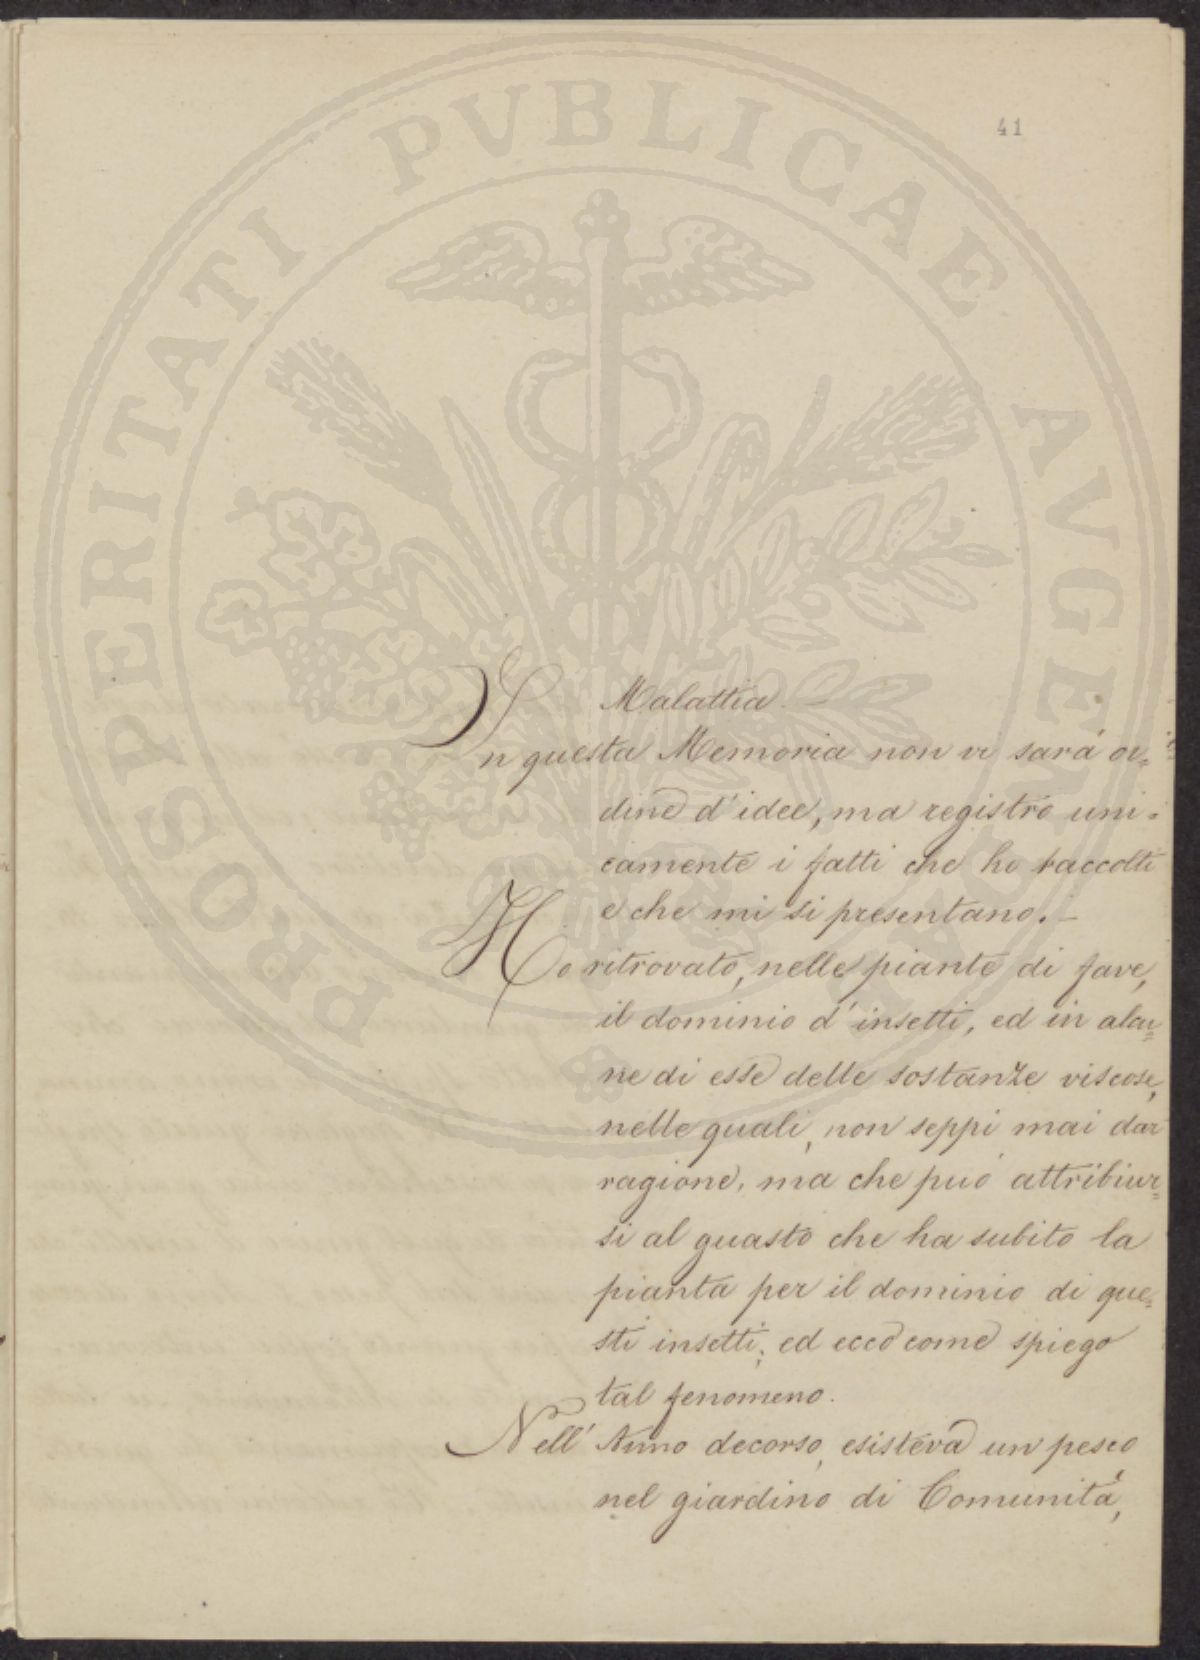 41
PROSPERITATI PUBLICAE AUGENDAE
Malattia. —
In questa Memoria non vi sará or=
dine d'idee, ma registro uni=
camente i fatti che ho raccolti
e che mi si presentano. —
Ho ritrovato, nelle piante di fave,
il dominio d'insetti, ed in alcu=
ne di esse delle sostanze viscose,
nelle quali, non seppi mai dar
ragione, ma che puó attribiur=
si al guasto che ha subito la
pianta per il dominio di que=
sti insetti; ed ecco come spiego
tal fenomeno.
Nell' Anno decorso, esisteva un pesco
nel giardino di Comunitá,